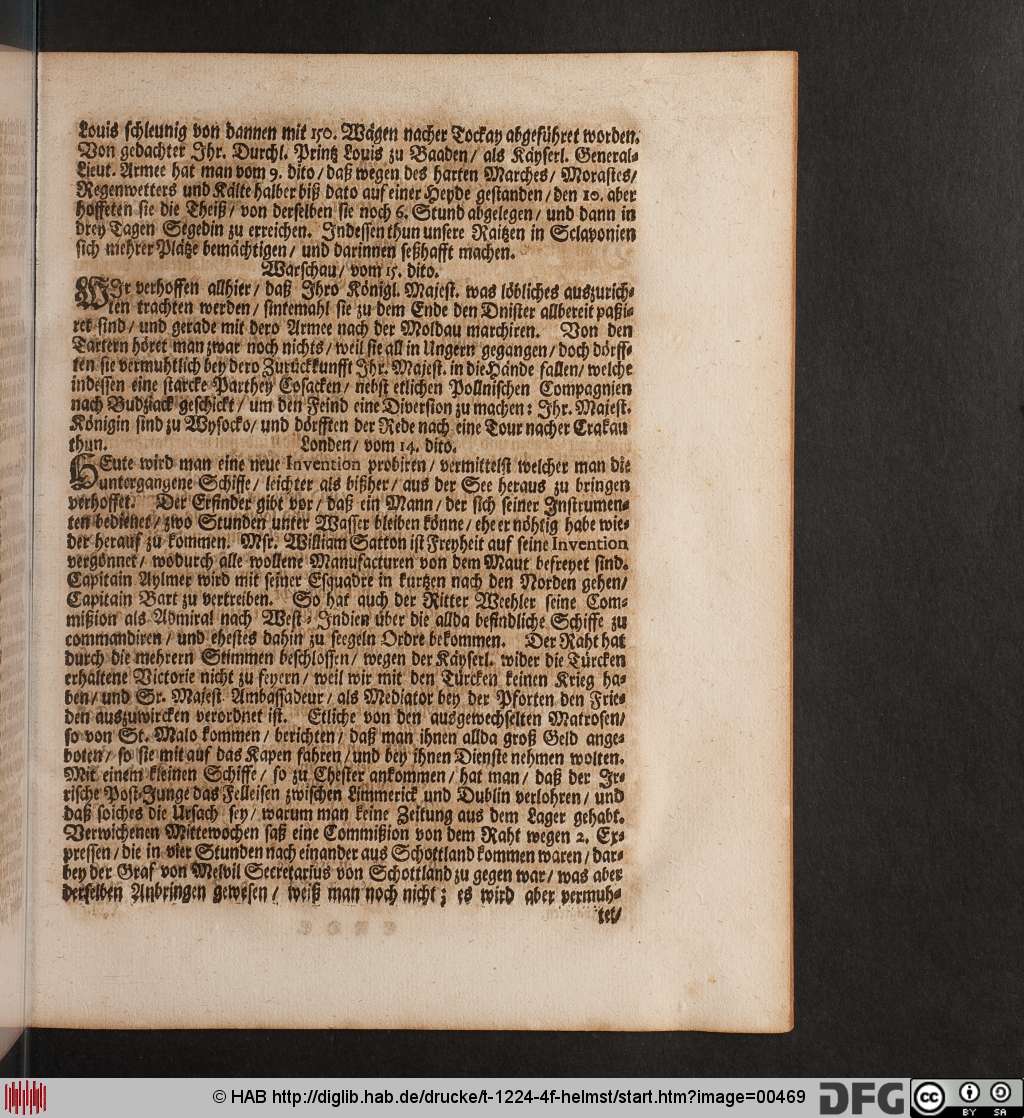 Louis schleunig von dannen mit 150. Wägen nacher Tockay abgeführet worden.
Von gedachter Ihr. Durchl. Printz Louis zu Baaden/ als Käyserl. General-
Lieut. Armee hat man vom 9. dito/ daß wegen des harten Marches/ Morastes/
Regenwetters und Kälte halber biß dato auf einer Heyde gestanden/ den 10. aber
hoffeten sie die Theiß/ von derselben sie noch 6. Stund abgelegen/ und dann in
drey Tagen Segedin zu erreichen. Indessen thun unsere Raitzen in Sclavonien
sich mehrer Plätze bemächtigen/ und darinnen seßhafft machen.
Warschau/ vom 15. dito.
WIr verhoffen allhier/ daß Ihro Königl. Majest. was löbliches auszurich-
ten trachten werden/ sintemahl sie zu dem Ende den Dnister allbereit paßi-
ret sind/ und gerade mit dero Armee nach der Moldau marchiren. Von den
Tartern höret man zwar noch nichts/ weil sie all in Ungern gegangen/ doch dörff-
ten sie vermuhtlich bey dero Zurückkunfft Ihr. Majest. in die Hände fallen/ welche
indessen eine starcke Parthey Cosacken/ nebst etlichen Pollnischen Compagnien
nach Budziack geschickt/ um den Feind eine Diversion zu machen: Ihr. Majest.
Königin sind zu Wysocko/ und dörfften der Rede nach eine Tour nacher Crakau
thun. Londen/ vom 14. dito.
HEute wird man eine neue Invention probiren/ vermittelst welcher man die
untergangene Schiffe/ leichter als bißher/ aus der See heraus zu bringen
verhoffet. Der Erfinder gibt vor/ daß ein Mann/ der sich seiner Instrumen-
ten bedienet/ zwo Stunden unter Wasser bleiben könne/ ehe er nöhtig habe wie-
der herauf zu kommen. Msr. William Satton ist Freyheit auf seine Invention
vergönnet/ wodurch alle wollene Manufacturen von dem Maut befreyet sind.
Capitain Aylmer wird mit seiner Esquadre in kurtzen nach den Norden gehen/
Capitain Bart zu vertreiben. So hat auch der Ritter Weehler seine Com-
mißion als Admiral nach West-Indien über die allda befindliche Schiffe zu
commandiren/ und ehestes dahin zu seegeln Ordre bekommen. Der Raht hat
durch die mehrern Stimmen beschlossen/ wegen der Käyserl. wider die Türcken
erhaltene Victorie nicht zu feyern/ weil wir mit den Türcken keinen Krieg ha-
ben/ und Sr. Majest. Ambassadeur/ als Mediator bey der Pforten den Frie-
den auszuwircken verordnet ist. Etliche von den ausgewechselten Matrosen/
so von St. Malo kommen/ berichten/ daß man ihnen allda groß Geld ange-
boten/ so sie mit auf das Kapen fahren/ und bey ihnen Dienste nehmen wolten.
Mit einem kleinen Schiffe/ so zu Chester ankommen/ hat man/ daß der Ir-
rische Post-Junge das Felleisen zwischen Limmerick und Dublin verlohren/ und
daß solches die Ursach sey/ warum man keine Zeitung aus dem Lager gehabt.
Verwichenen Mittewochen saß eine Commißion von dem Raht wegen 2. Ex-
pressen/ die in vier Stunden nach einander aus Schottland kommen waren/ dar-
bey der Graf von Melvil Secretarius von Schottland zu gegen war/ was aber
derselben Anbringen gewesen/ weiß man noch nicht; es wird aber vermuh-
tet/
© HAB http://diglib.hab.de/drucke/t-1224-4f-helmst/start.htm?image=00469
DFG
cc
BY SA